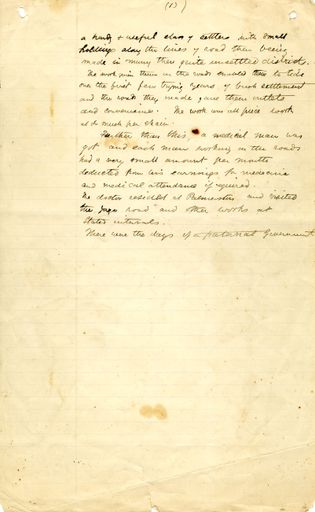 (13)
a handy & useful class of settlers into small
holdings along the lines of road then being
made in many then quite unsettled districts.
The work given them on the roads enabled them to tide
over the first few trying years of bush settlement
and the roads they made gave them outlets
and convenience. The work was all piece work
at so much per chain.
Further than this a medical man was
got and each man working on the roads
had a very small amount per month
deducted from his earnings for medicine
and medical attendance if required.
The doctor resided at Palmerston and visited
the Gorge road and other works at
stated intervals.
These were the days of a paternal Government